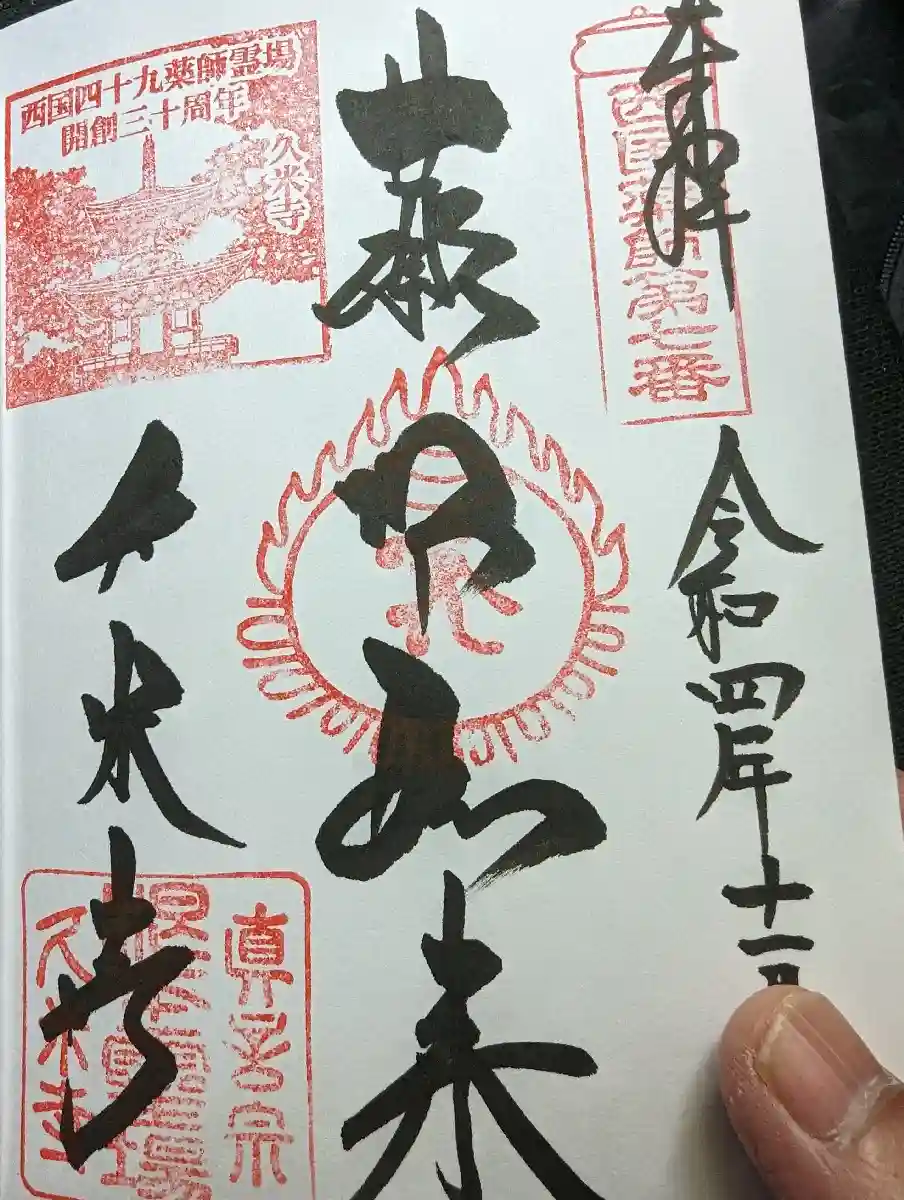 奉拝
西国薬師第七番
令和四年十一月
薬师如来
西国四十九薬師霊場
開創三十周年
久米寺
久米寺
真言宗
根本霊場
久米寺